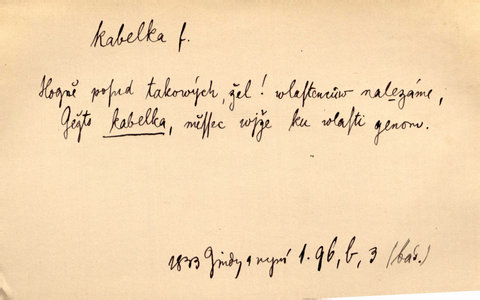 kabelka f.
Hogně posud takowých, žel! wlastencůw nalezáme,
Gežto kabelka, měssec wjže ku wlasti genom.
1833 Gindy a nynj 1. 96, b, 3 (bás.)